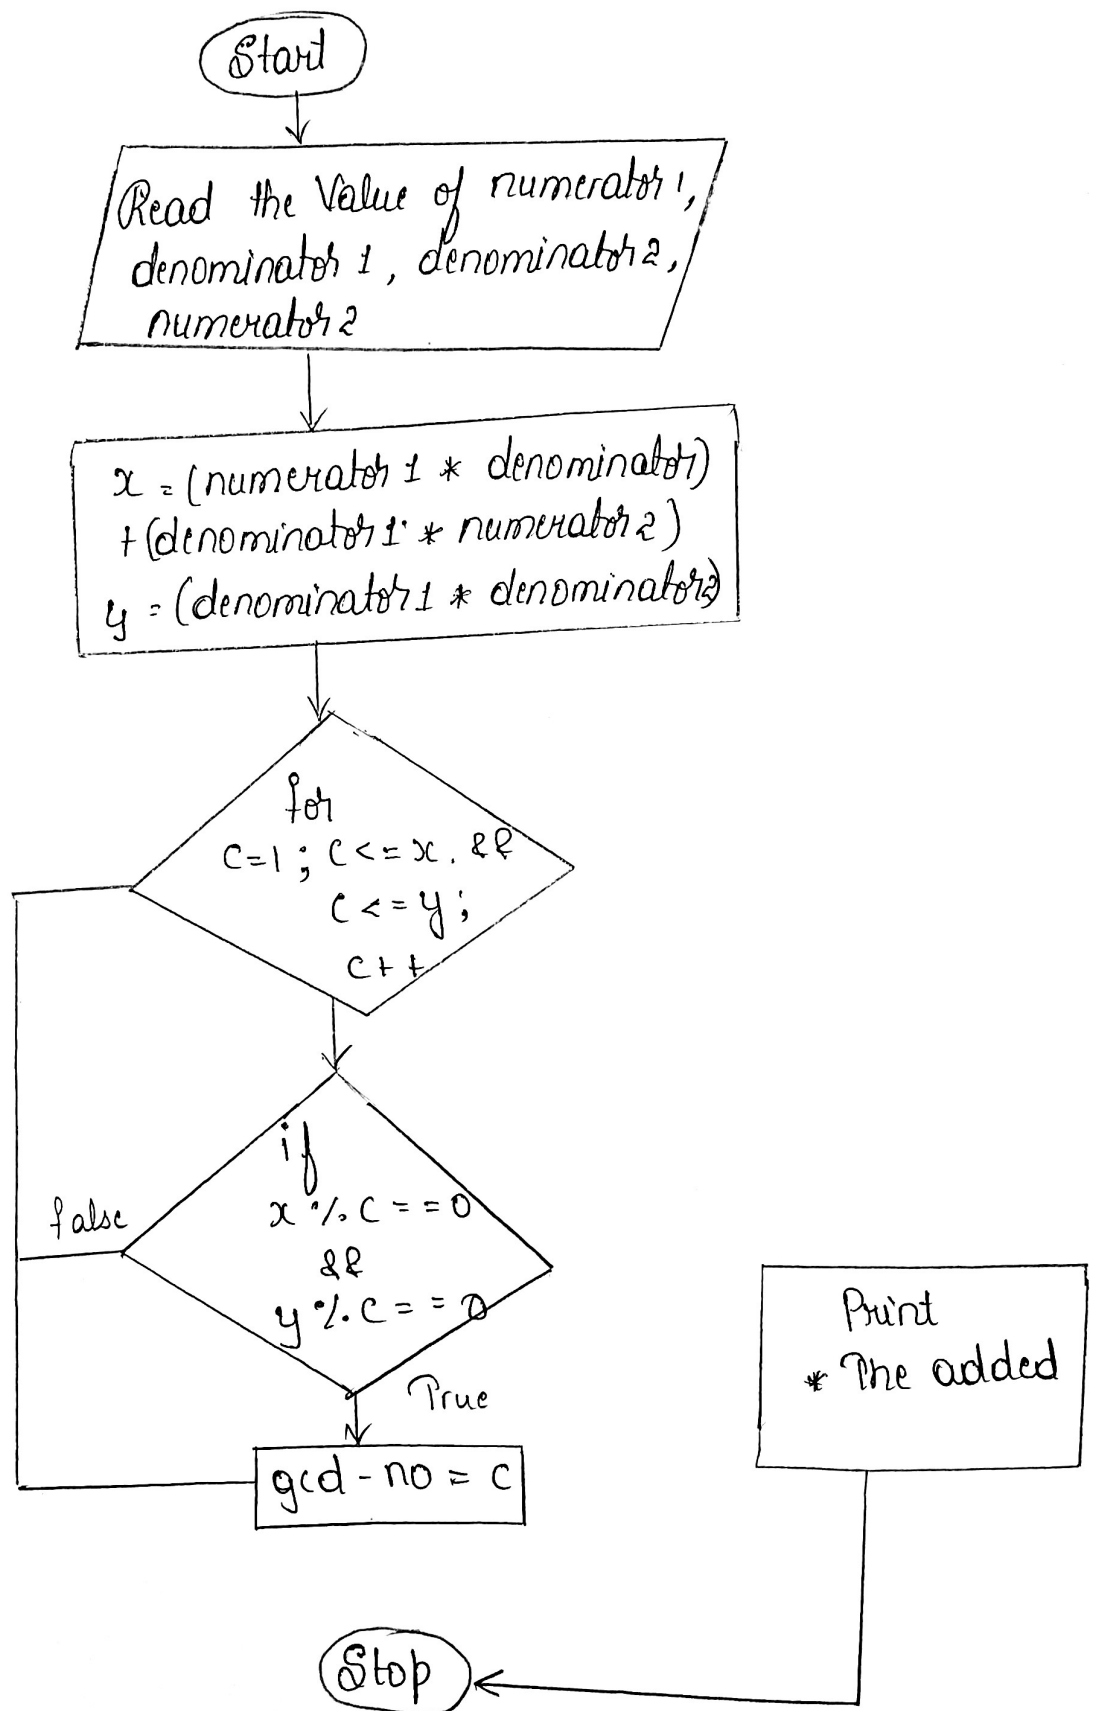 Start
Read the Value of numerator 1,
denominator 1, denominator 2,
numerator 2
x = (numerator 1 * denominator)
+ (denominator 1 * numerator 2)
y = (denominator 1 * denominator 2)
for
C=1 ; C <= x . &&
C <= y ;
C++
if
x % C == 0
&&
y % C == 0
false
True
gcd-no = c
Print
* The added
Stop